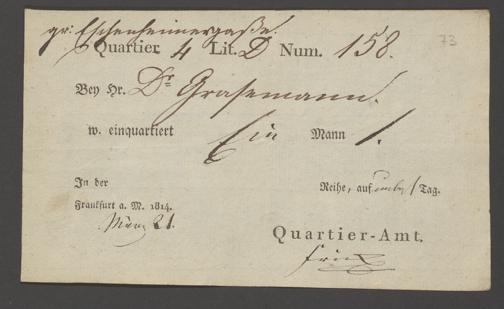 gr: Eschenheimergaße.
73
Quartier 4 Lit. D Num. 158.
Bey Hr. Dr Grasemann.
w. einquartiert Ein Mann 1.
In der Reihe, auf 1 Tag.
Frankfurt a. M. 1814.
März 21.
Quartier-Amt.